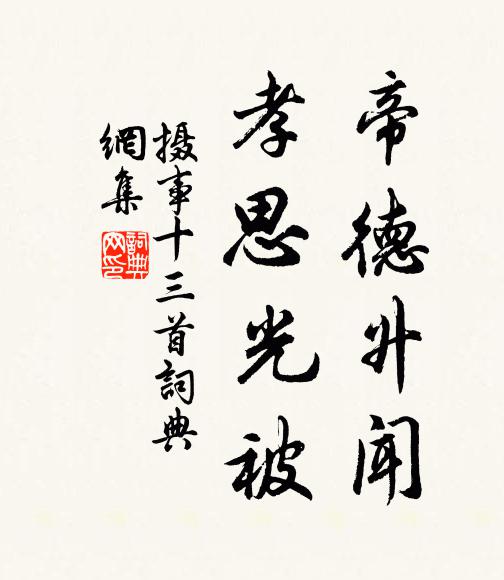 帝德升闻
孝思光被
摄事十三首词典
網集
詞典
网印